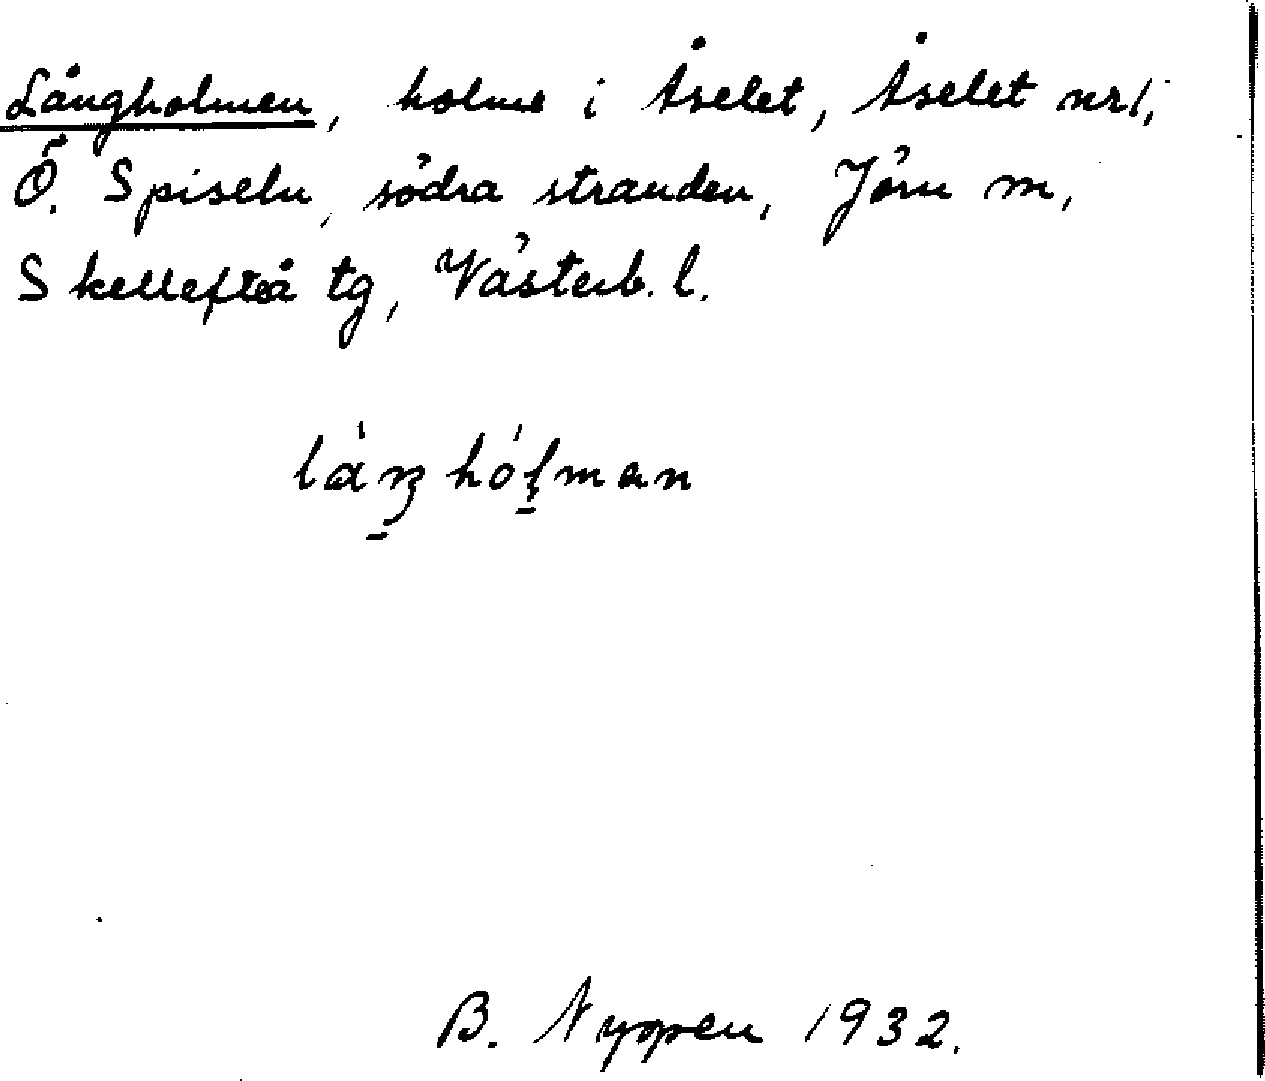 Långholmen, holme i Åselet, Åselet nr 1,
Ö. Spiseln, södra stranden, Jörn sn,
Skellefteå tg, Västerb. l.
B. Nyppen 1932.